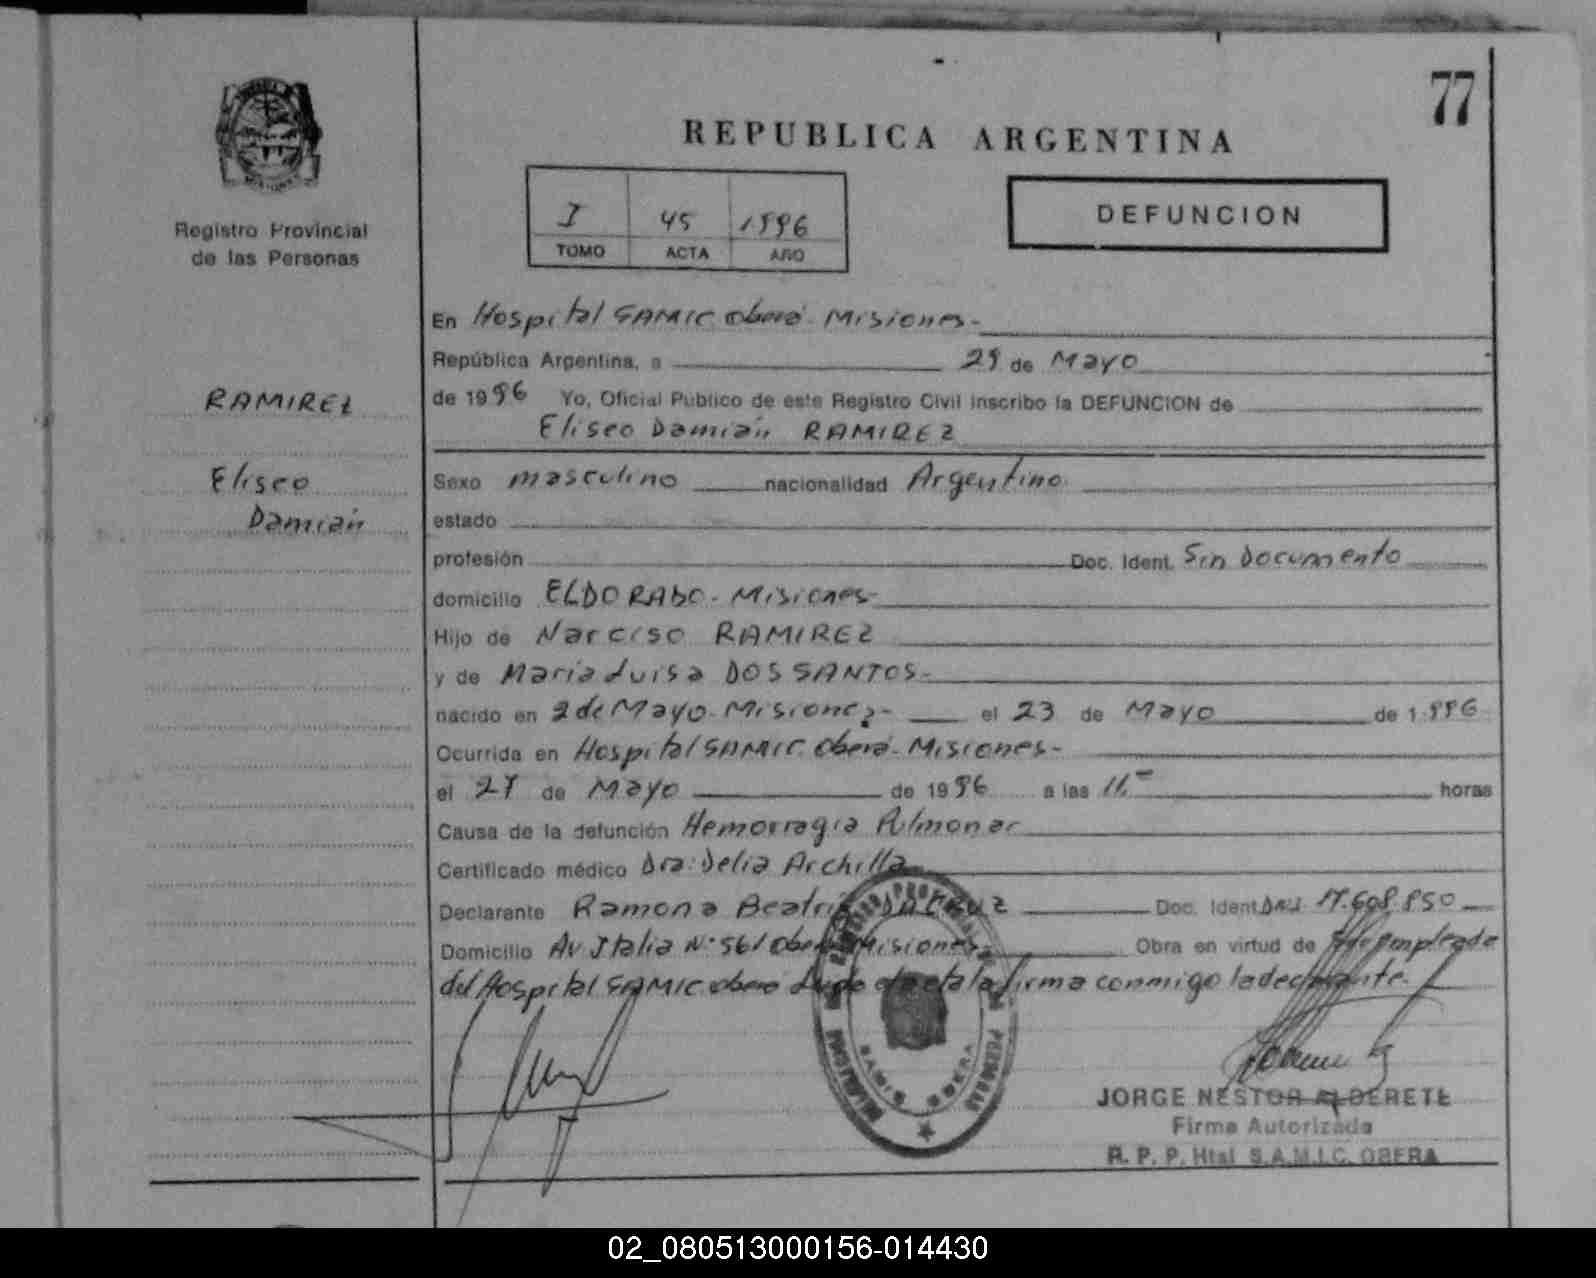 77
REPUBLICA ARGENTINA
Registro Provincial
de las Personas
I 45 1996
TOMO ACTA AÑO
DEFUNCION
RAMIREZ
Eliseo
Damián
En Hospital SAMIC Oberá - Misiones -
República Argentina, a 29 de Mayo
de 1996 Yo, Oficial Público de este Registro Civil inscribo la DEFUNCION de
Eliseo Damián RAMIREZ
Sexo masculino nacionalidad Argentino
estado
profesión Doc. Ident. Sin Documento
domicilio ELDORADO - Misiones -
Hijo de Narciso RAMIREZ
y de Maria Luisa DOS SANTOS -
nacido en 2 de Mayo - Misiones - el 23 de Mayo de 1.996
Ocurrida en Hospital SAMIC. Oberá - Misiones -
el de Mayo de 1996 a las 11 horas
Causa de la defunción Hemorragia Pulmonar
Certificado médico Dra: Delia Archilla
Declarante Ramona Beatriz DA CRUZ Doc. Ident. DNI 17.608.850
Domicilio Av Italia Nº 561 Oberá Misiones Obra en virtud de empleada
del Hospital SAMIC Oberá acta la firma conmigo la declarante.
JORGE NESTOR ALDERETE
Firma Autorizada
R. P. P. Htal S.A.M.I.C. OBERA
SAMIC OBERA
02_080513000156-014430